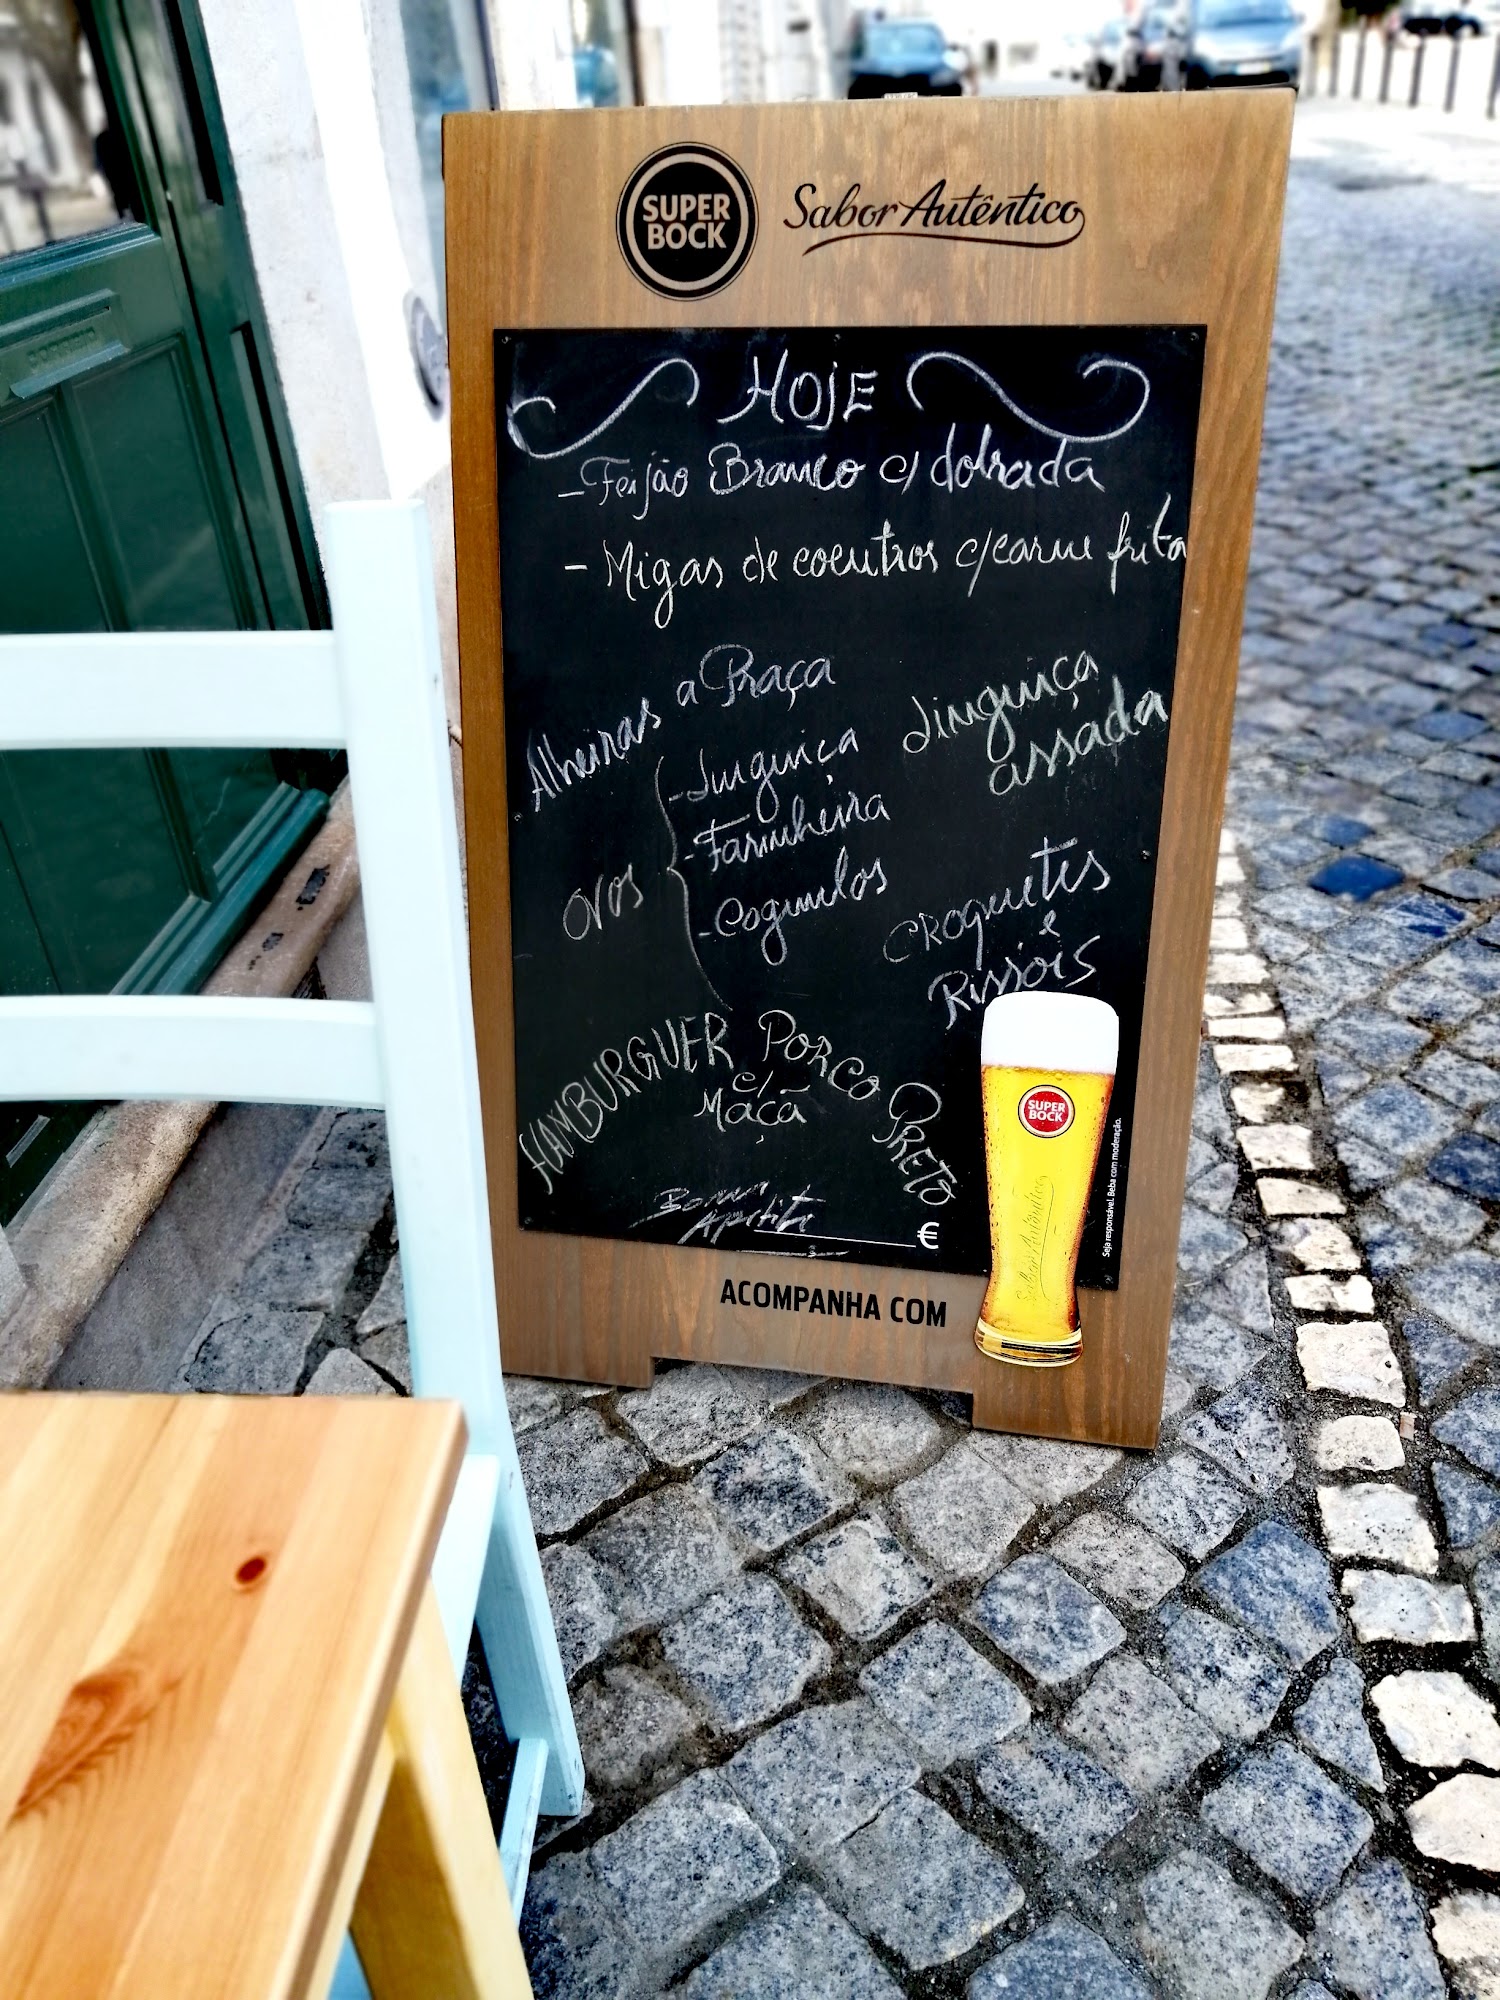 SUPER
BOCK
Sabor Autêntico
HOJE
- Feijão Branco c/ dobrada
- Migas de coentros c/ carne frita
Alheiras a Praça
Linguiça
assada
Ovos
- Linguiça
- Farinheira
- Cogumelos
CROQUETES
e
RissóiS
HAMBURGUER PORCO PRETO
c/
Maçã
Bonum
Apetite
€
SUPER
BOCK
Sabor Autêntico
Seja responsável. Beba com moderação.
ACOMPANHA COM